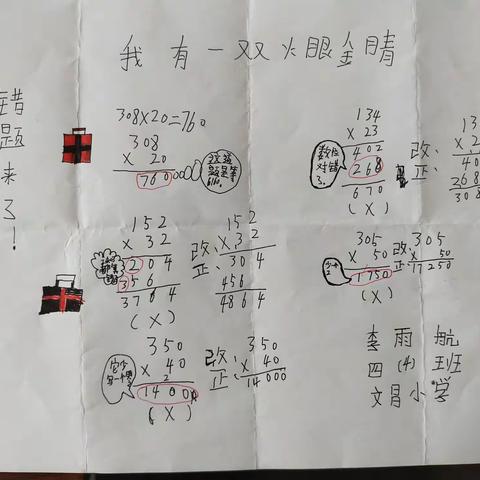 我有一双火眼金睛
错题来了!
308×20=760
308
× 20
760
这题
等
134
× 23
402
268
670
(×)
数位
对错
3.
改正:
13
× 2
40
268
308
152
× 32
204
356
3764
(×)
改正:
152
× 32
304
456
4864
305
× 50
1750
(×)
改正:
305
× 50
17250
350
× 40
2
14000
(×)
改正:
350
× 40
14000
李雨航
四(4)班
文昌小学